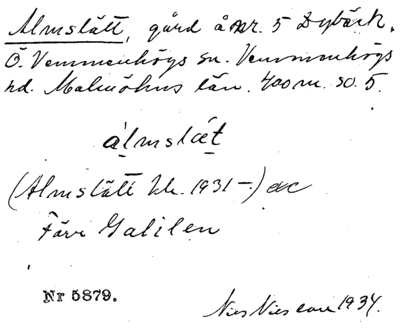 Almslätt, gård å nr. 5 Dybäck,
Ö. Vemmenhögs sn. Vemmenhögs
hd. Malmöhus län. 400 m. SO. 5.
álmslæ̀t
(Almslätt kk. 1931-) ac
Förr Galileen
Nr 5879.
Nils Nilsson 1934.